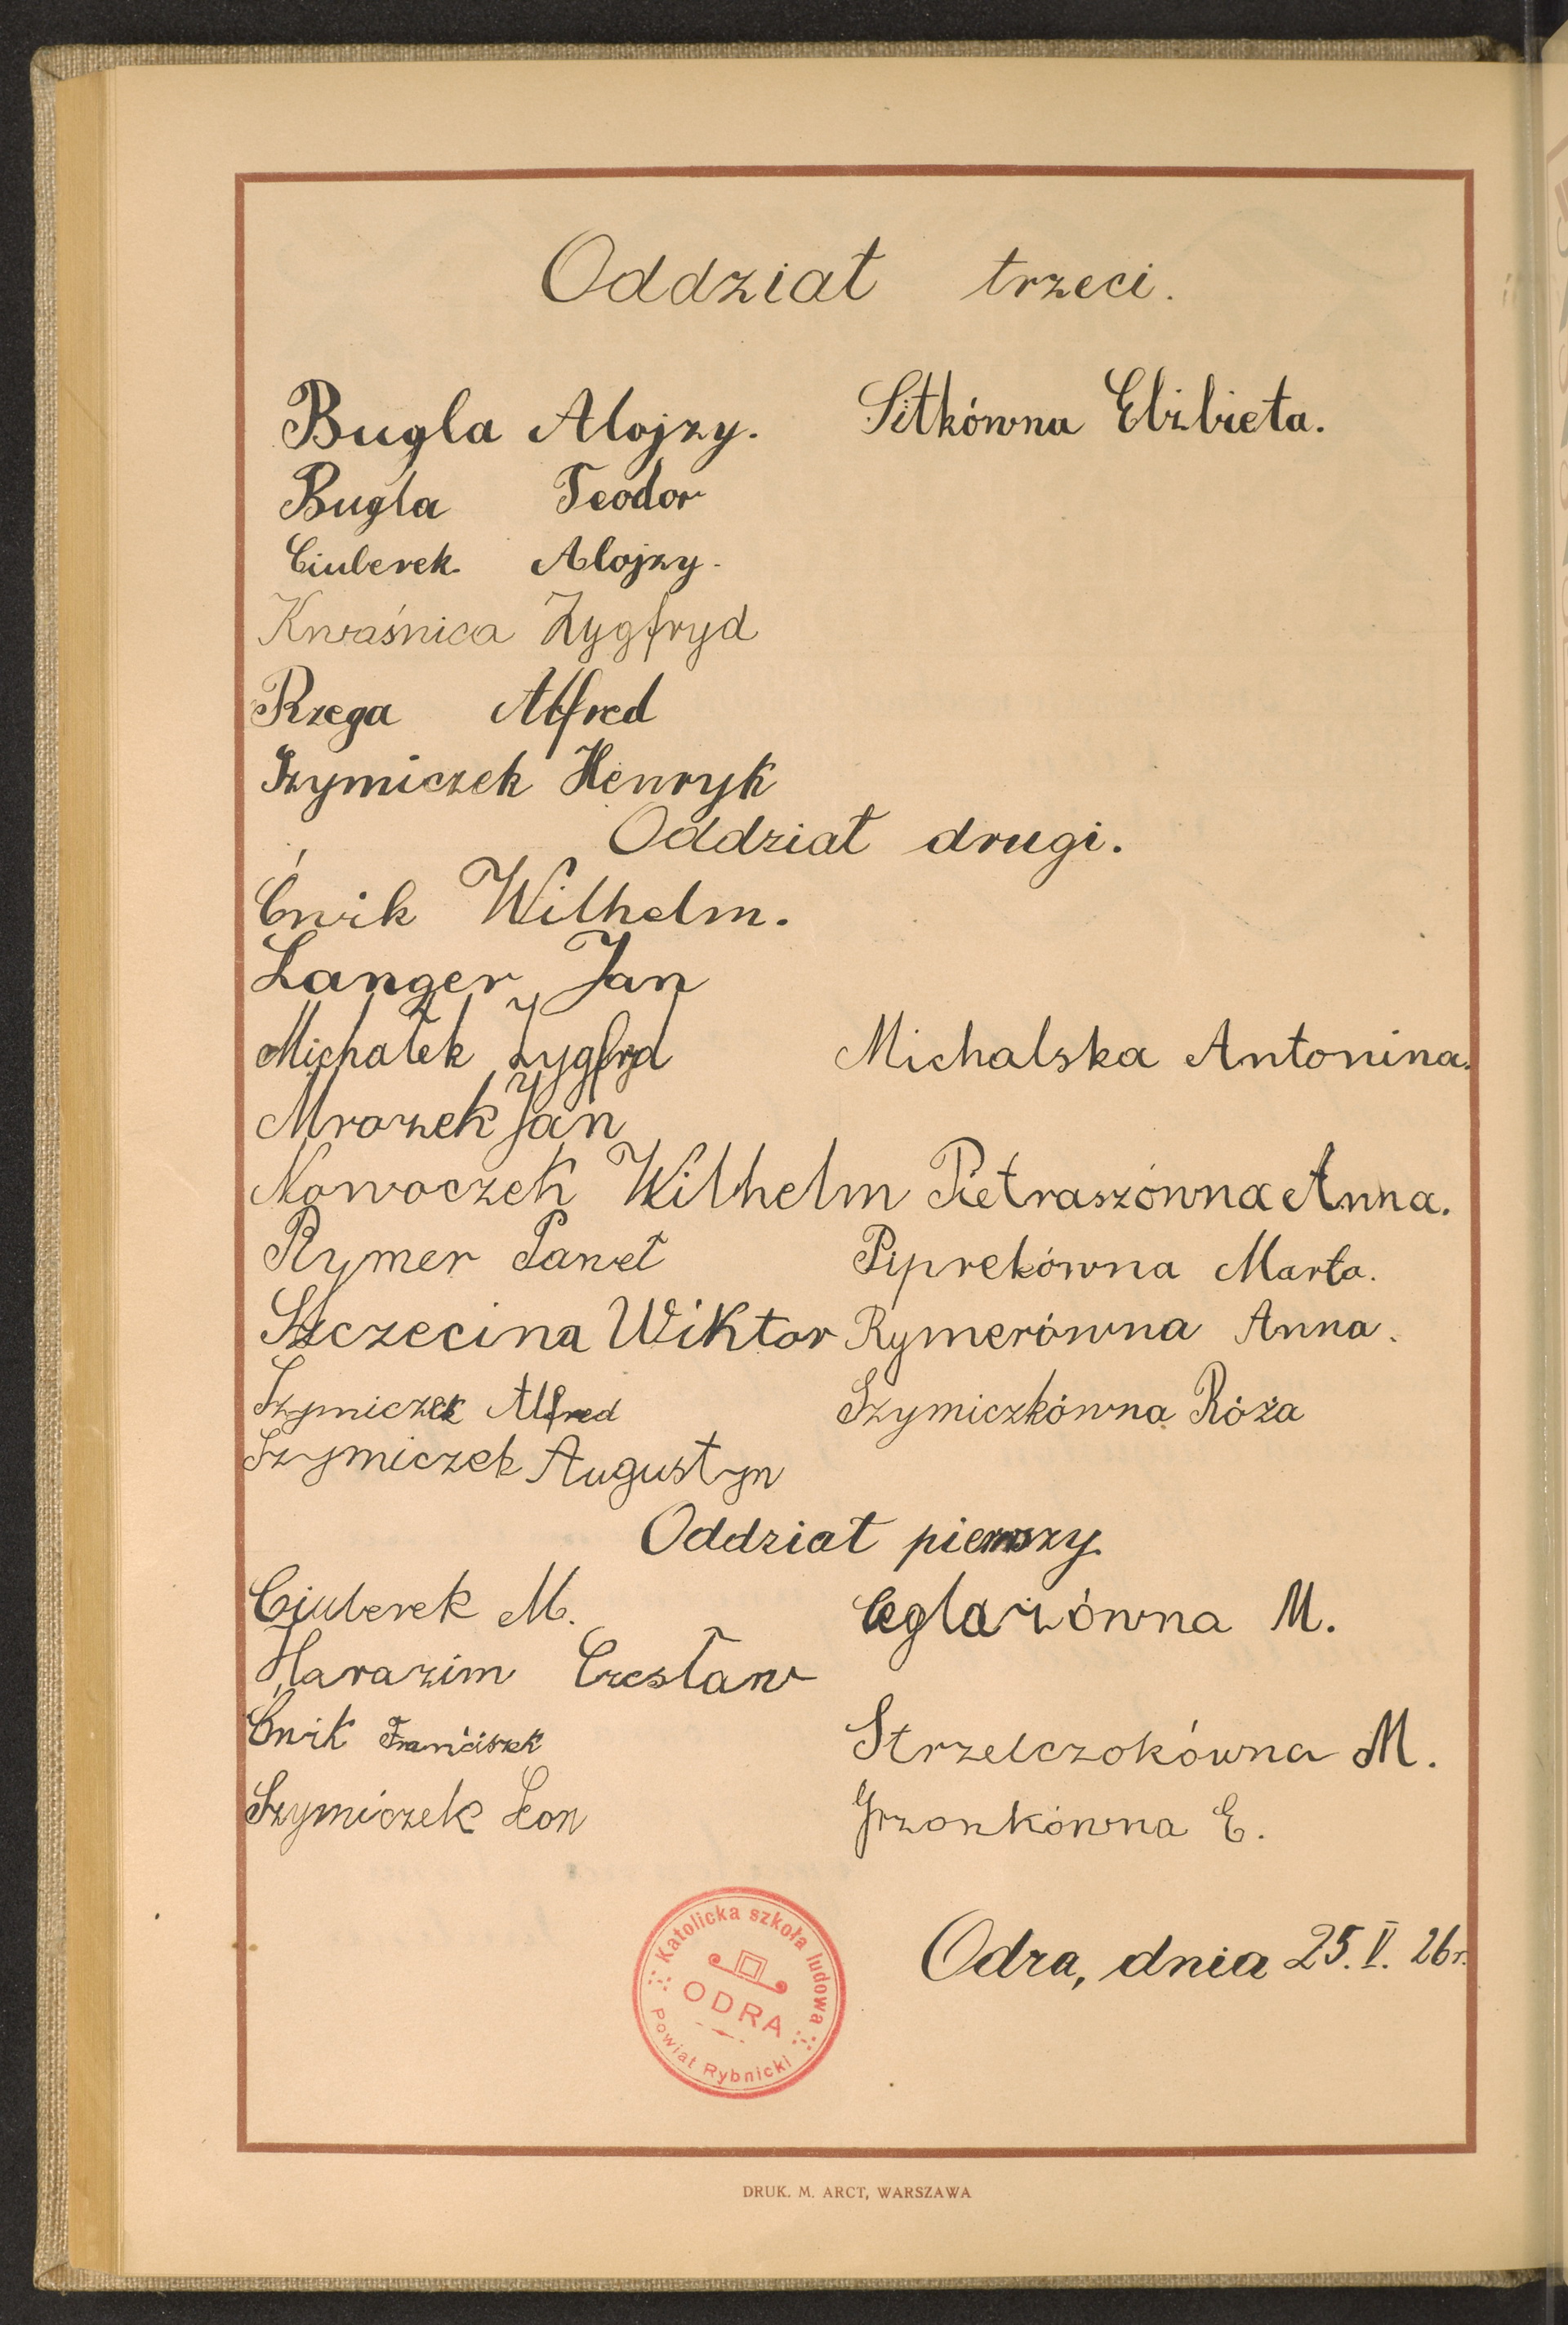 Oddział trzeci.
Bugla Alojzy. Sitkówna Elżbieta.
Bugla Teodor
Ciuberek Alojzy.
Kwaśnica Zygfryd
Rzega Alfred
Szymiczek Henryk
Oddział drugi.
Ćwik Wilhelm.
Langer Jan
Michałek Zygfryd Michalska Antonina.
Mrozek Jan
Nowoczek Wilhelm Pietraszówna Anna.
Rymer Paweł Piprekówna Marta.
Szczecina Wiktor Rymerówna Anna.
Szymiczek Alfred Szymiczkówna Róża
Szymiczek Augustyn
Oddział pierwszy.
Ciuberek M. Ceglarzówna M.
Harazim Czesław
Ćwik Franciszek Strzelczokówna M.
Szymiczek Leon Grzonkówna E.
Odra, dnia 25. V. 26 r.
Katolicka szkoła ludowa
ODRA
Powiat Rybnicki
DRUK. M. ARCT, WARSZAWA